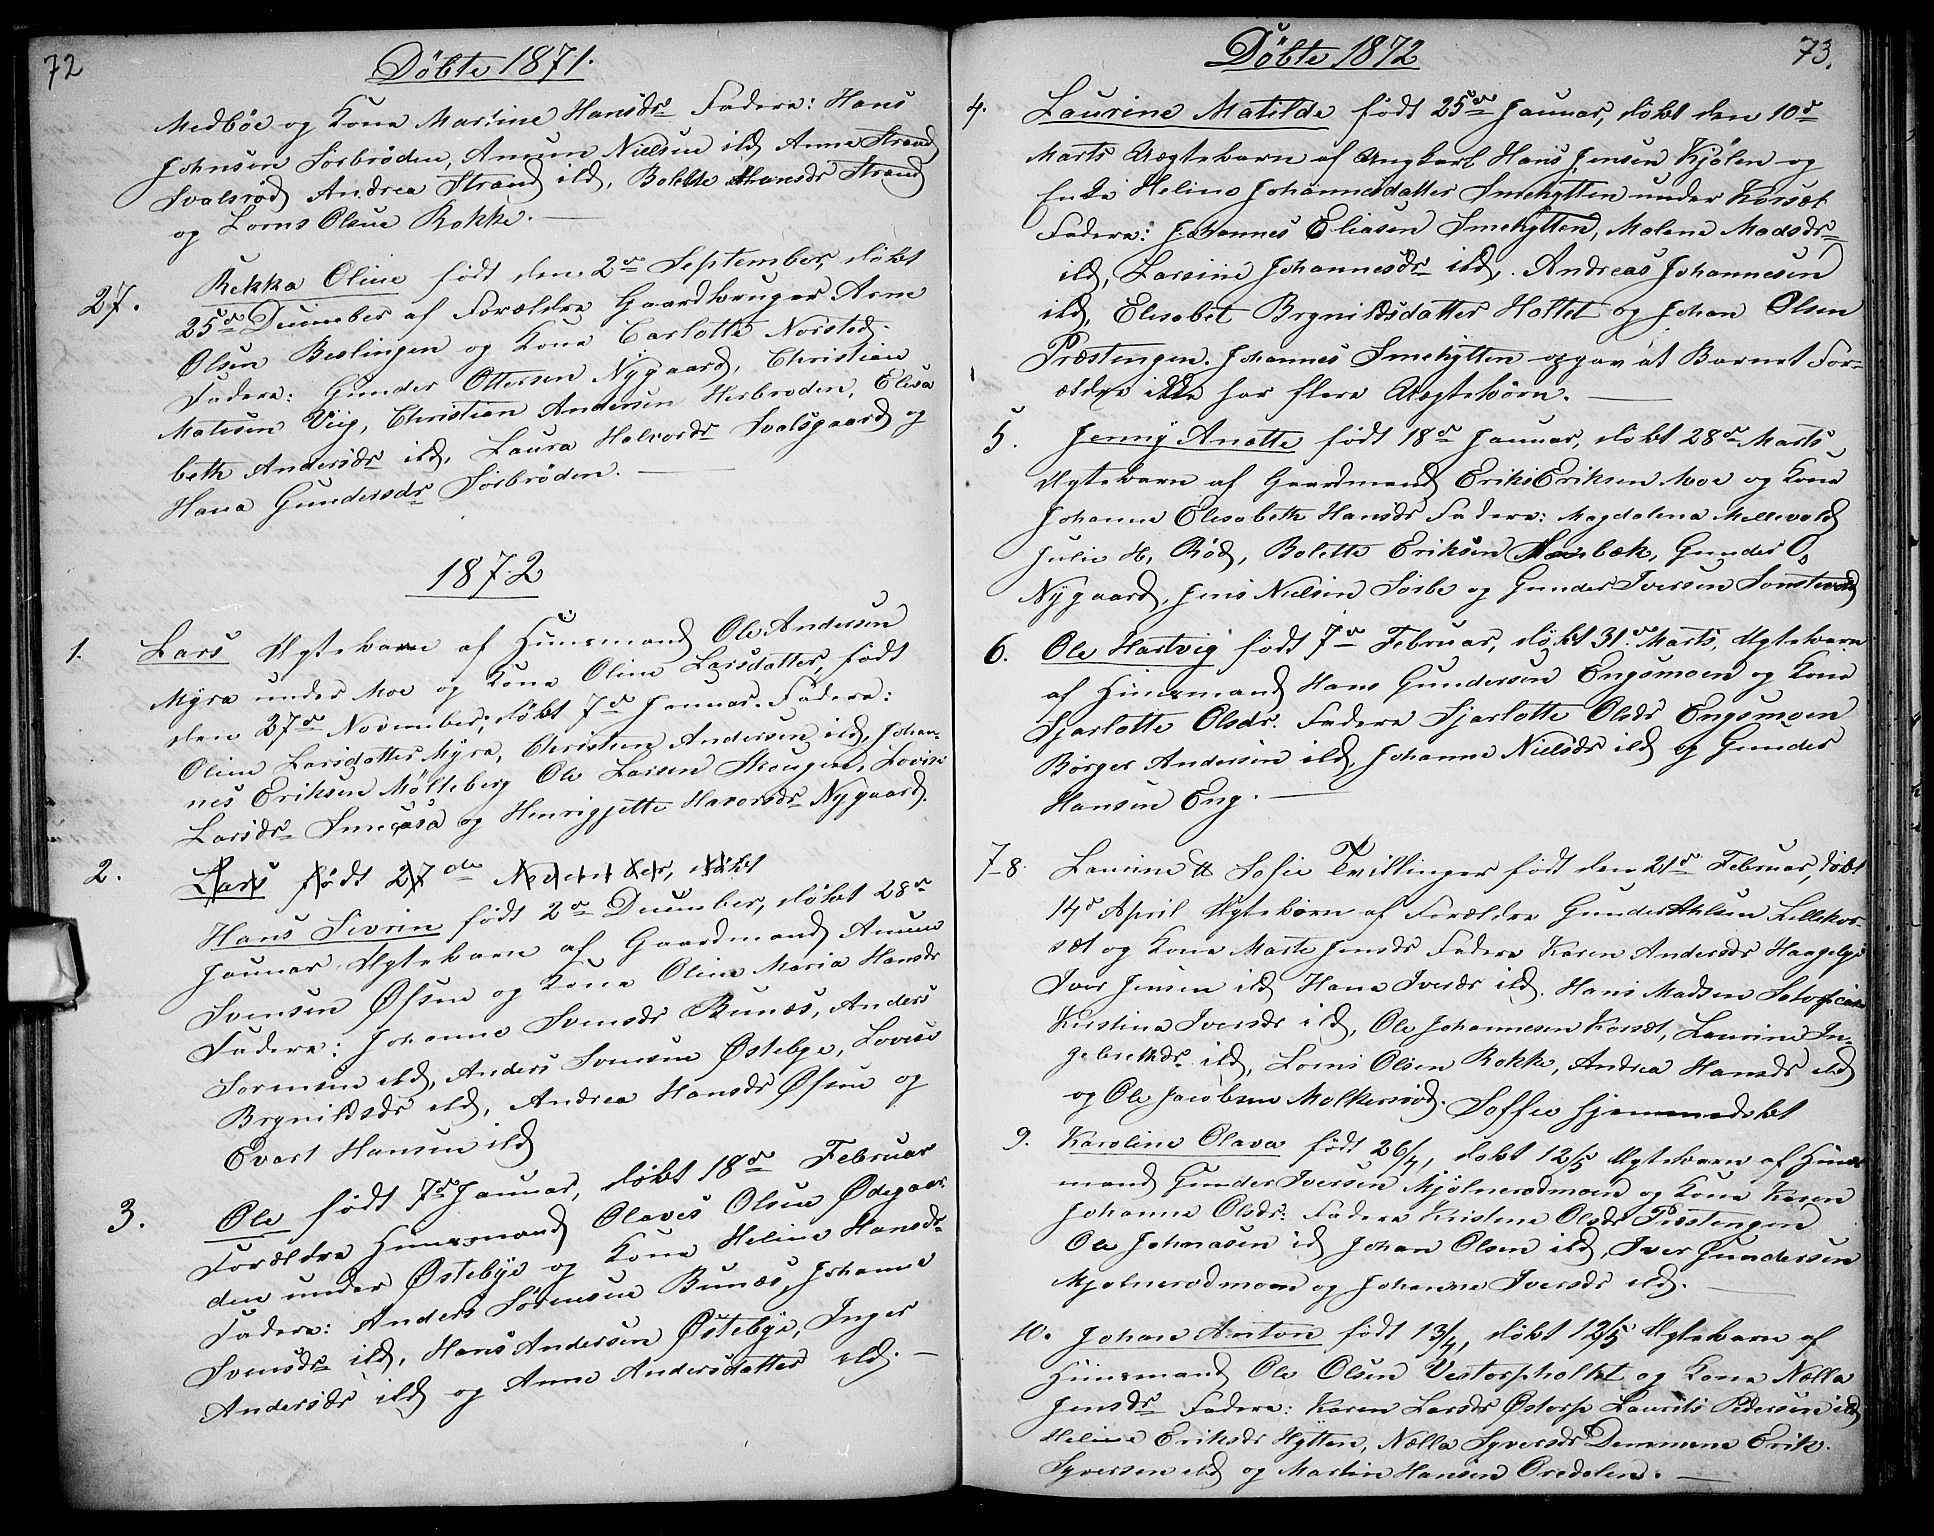 72
Döbte 1871.
Medböe og Kona Martine Hansdr Faddere: Hans
Johnsen Sörbröden, Amun Nielsen ibd, Anna Strand,
Svalsröd Andrea Strand ibd, Bolette Hansdr Strand
og Lorns Olsen Rokke.
27. Rekka Oline född den 2den September, döbt
25de December af Forældre Gaardbruger Arne
Olsen Beslingen og Kona Carlotte Norsted.
Faddere: Gunder Ottersen Nygaard, Christian
Matisen Viig, Christian Andersen Herbröden, Elisa
beth Andersdr ibd, Laura Halvordr Svalsgaard og
Hana Gundersdr Sörbröden.
1872
1. Lars Ægtebarn af Huusmand Ole Andersen
Myra under Moe og Kona Oline Larsdatter, født
den 27de November, döbt 7de Januar. Faddere:
Oline Larsdatter Myra, Christian Andersen ibd, Johan-
nes Eriksen Mölteberg Ole Larsen Skougen, Lovise
Larsdr Smeaasa og Henrigjette Havorsdr Nygaard.
2. Lars födt 27de November, döbt
Hans Sivrin födt 2den December, döbt 28de
Januar Ægtebarn af Gaardmand Amun
Svensen Øfsen og Kona Oline Maria Hansdr
Faddere: Johanne Svensdr Bunæs, Anders
Sörensen ibd, Anders Svensen Østebye, Lovise
Brynildsdr ibd, Andrea Hansdr Øfsen og
Evart Hansen ibd
3. Ole födt 7de Januar, döbt 18de Februar
Forældre Huusmand Olaves Olsen Ødegaar-
den under Østebye og Kona Heline Hansdr
Faddere: Anders Sörensen Bunæs, Johanne
Svensdr ibd, Hans Andersen Østebye, Inger
Andersdr ibd og Anne Andersdatter ibd.
73.
Döbte 1872
4. Laurine Matilde födt 25de Januar, döbt den 10de
Marts Uægtebarn af Ungkarl Hans Jensen Kjölen og
Enke Heline Johannesdatter Smehytten under Korsæt
Faddere: Johannes Eliasen Smehytten, Malene Madsdr
ibd, Larsine Johannesdr ibd, Andreas Johannesen
ibd, Elisabet Brynildsdatter Holtet og Johan Olsen
Præstengen. Johannes Smehytten opgav at Barnet For-
ældre ikke har flere Uægtebörn.
5. Jenny Anette födt 18de Januar, döbt 28de Marts
Ægtebarn af Gaardmand Erik Eriksen Moe og Kona
Johanne Elisabeth Hansdr Faddere: Magdalena Mellevold
Julie H. Röd, Bolette Eriksen bæk, Gunder O.
Nygaard, Jens Nielsen Sörbe og Gunder Iversen Tomtevold
6. Ole Hartvig födt 7de Februar, döbt 31de Marts, Ægtebarn
af Huusmand Hans Gundersen Engsmoen og Kona
Sjarlotte Olsdr. Faddere Sjarlotte Olsdr Engsmoen
Börger Andersen ibd, Johanne Nielsdr ibd og Gunder
Hansen Eng.
7-8. Laurine & Sofie Tvillinger födt den 21de Februar, döbt
14de April Ægtebörn af Forældre Gunder Ahlsen Lillekor-
sæt og Kona Marte Jensdr Faddere Karen Andersdr Haagelye
Iver Jensen ibd Hana Iversdr ibd. Hans Madsen
Kristina Iversdr ibd, Ole Johannesen Korsæt, Laurine In-
gebrethdr ibd, Lornis Olsen Rokke, Andrea Hansdr ibd
og Ole Jacobsen Molkersröd. Soffie hjemmedöbt
9. Karoline Olava födt 26/4, döbt 12/5 Ægtebarn af Huus
mand Gunder Iversen Mjölnerödmoen og Kona Karen
Johanne Olsdr. Faddere Kristine Olsdr Præstengen
Ole Johnasen ibd Johan Olsen ibd, Iver Gundersen
Mjölnerodmoen og Johanne Iversdr ibd.
10. Johan Anton födt 13/4, döbt 12/5 Ægtebarn af
Huusmand Ole Olsen Vestorpholtet og Kona Nella
Jensdr Faddere: Karen Larsdr Østorp Laurits Pedersen ibd
Heline Eriksdr Hytten, Nella Syversdr Demmene Erik
Syversen ibd og Martin Hansen Oredalen.